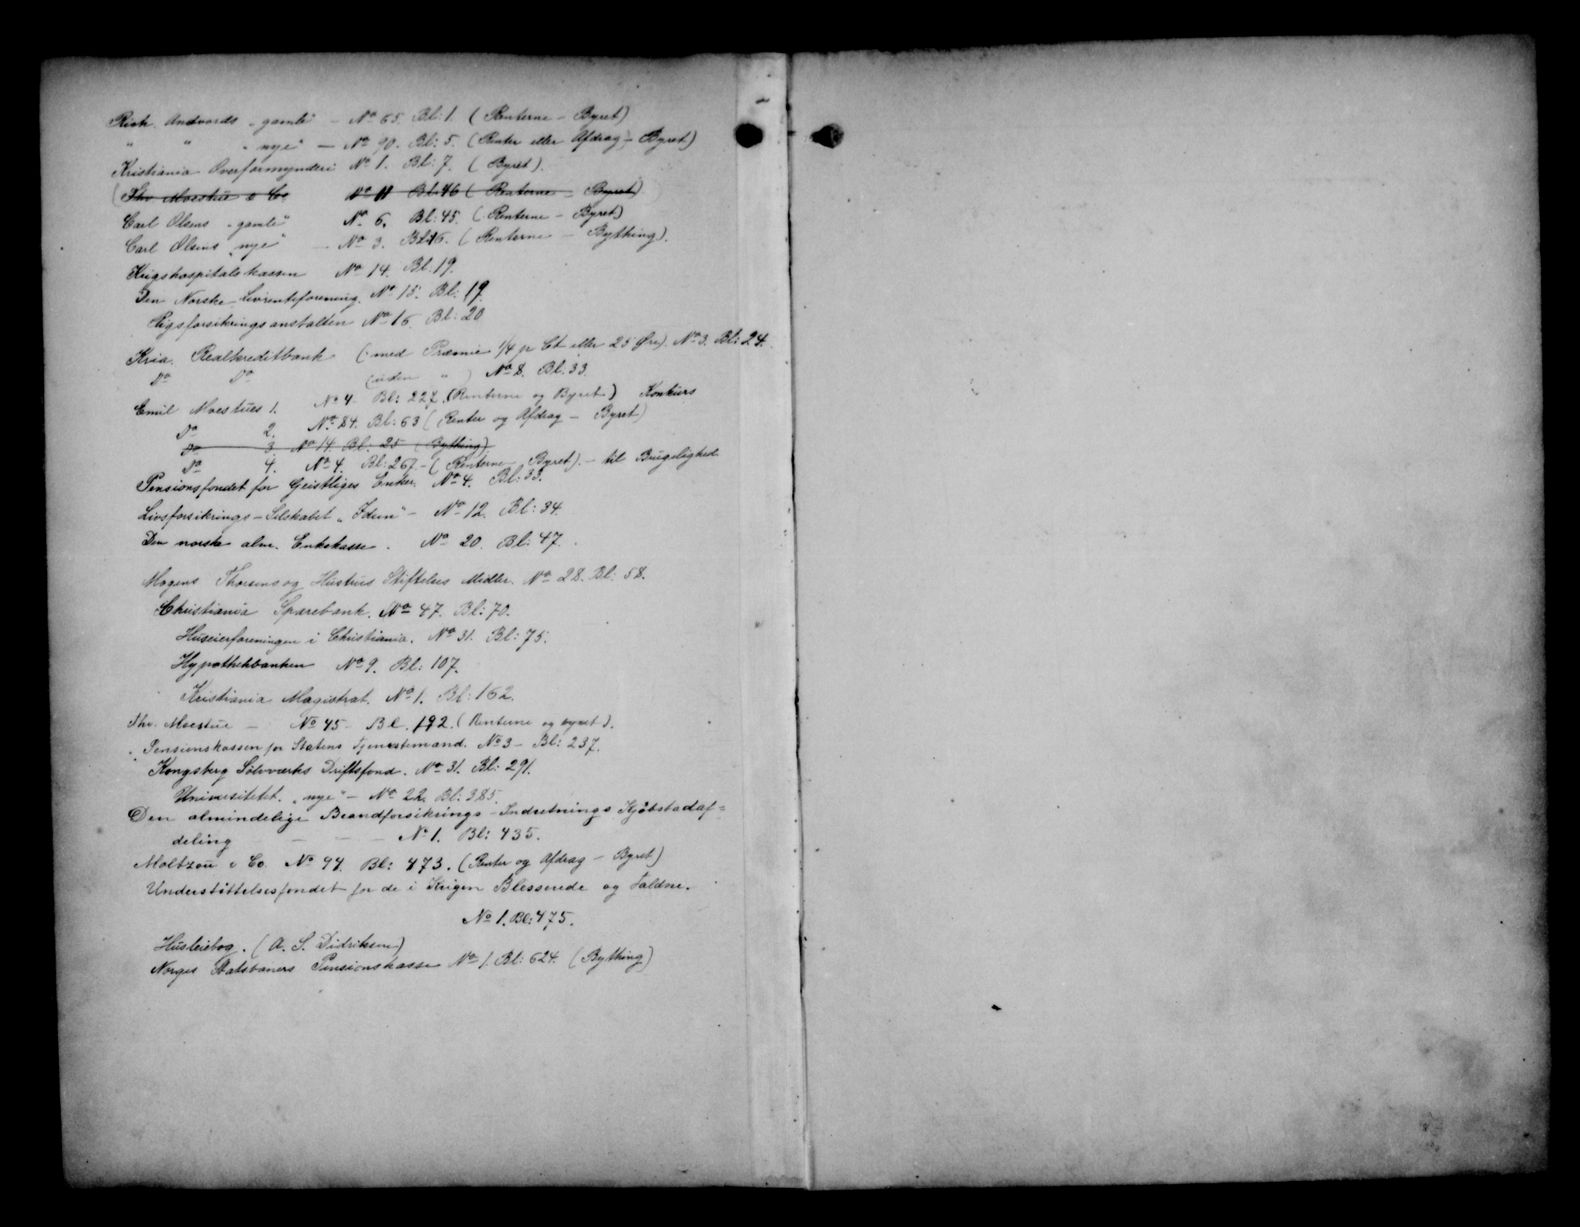 Rich. Andvords „gamle" – No 65. Bl: 1. (Renterne – Byret)
" " „nye" – No 90. Bl: 5. (Renter eller Afdrag – Byret)
Kristiania Overformynderi No 1. Bl: 7. (Byret).
(Thv. Moestue & Co No 11 Bl: 46 (Renterne – Byret)
Carl Olsens „gamle" No 6. Bl: 45. (Renterne – Byret)
Carl Olsens „nye" – No 3. Bl: 46. (Renterne – Bything).
Krigshospitalskassen No 14. Bl: 19.
Den Norske Livrenteforening. No 15. Bl: 19.
Rigsforsikringsanstalten No 16 Bl: 20
Kria. Realkreditbank (med Præmie 1/4 pr Ct eller 25 Øre). No 3. Bl: 24.
Do Do (uden " ) No 8. Bl: 33.
Emil Moestues 1. No 4. Bl: 227. (Renterne og Byret) Konkurs
Do 2. No 84. Bl: 63 (Renter og Afdrag – Byret)
Do 3. No 14. Bl: 25 (Bything)
Do 4. No 4. Bl: 267. – (Renterne – Byret). – til Brugelighed
Pensionsfondet for Geistliges Enker. No 4. Bl: 33.
Livsforsikrings – Selskabet „Idun" – No 12. Bl: 34.
Den norske alm. Enkekasse. No 20. Bl: 47.
Mogens Thorsens og Hustrus Stiftelses Midler. No 28. Bl: 58.
Christiania Sparebank. No 47. Bl: 70.
Huseierforeningen i Christiania. No 31. Bl: 75.
Hypothekbanken No 9. Bl: 107.
Kristiania Magistrat. No 1. Bl: 162.
Thv. Moestue – No 45 – Bl. 192. (Renterne og byret).
Pensionskassen for Statens Tjenestemænd. No 3 – Bl: 237.
Kongsberg Sølvværks Driftsfond. No 31. Bl: 291.
Universitetet. „nye" – No 22. Bl: 385.
Den almindelige Brandforsikrings – Indretnings Kjøbstadaf=
deling – – – No 1. Bl: 435.
Moltzau & Co. No 94. Bl: 473. (Renter og Afdrag – Byret)
Understøttelsesfondet for de i Krigen Blesserede og Faldne.
No 1. Bl: 475.
Husleiebog. (A. S. Didriksen)
Norges Statsbaners Pensionskasse No 1. Bl: 624. (Bything)